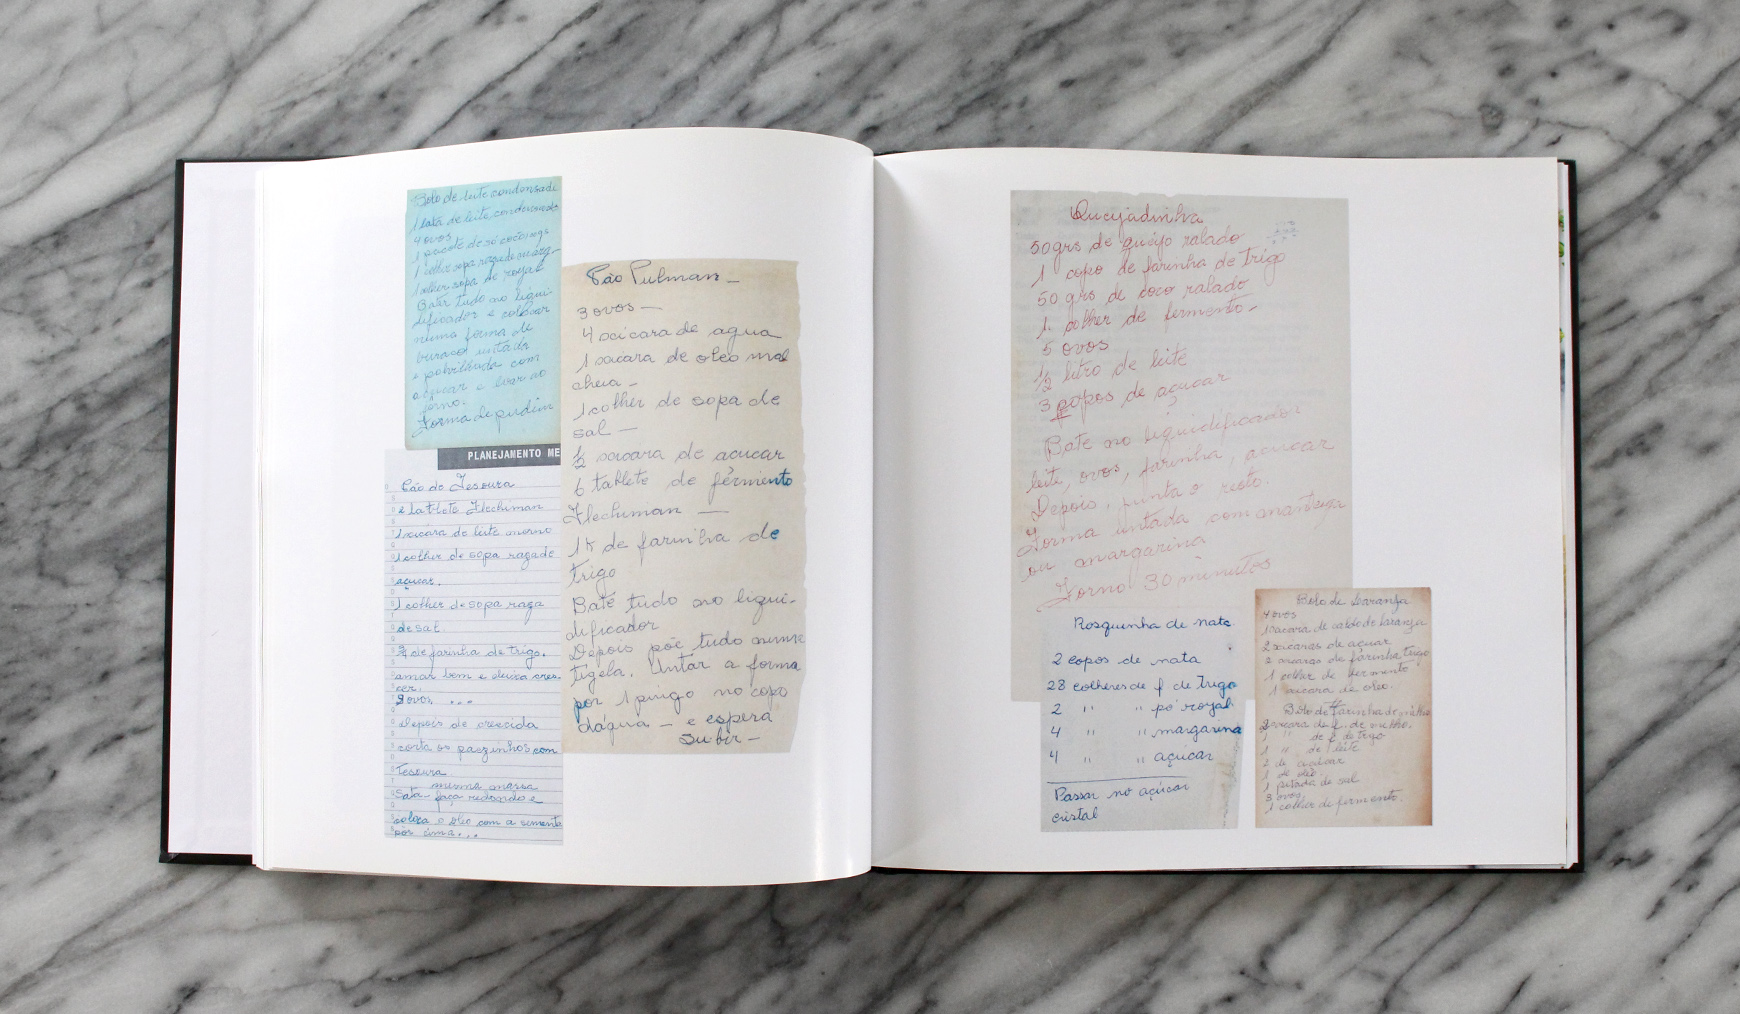 Bolo de leite condensado
1 lata de leite condensado
4 ovos
1 pacote de coco
1 colher sopa rasa de marg-
1 colher sopa de royal
Bater tudo no liqui-
dificador e colocar
numa forma de
buraco untada
e polvilhada com
açucar e levar ao
forno.
Forma de pudim
PLANEJAMENTO ME
Pão de Tesoura
tablete Flechiman
1 xicára de leite morno
1 colher de sopa rasa de
açucar.
1 colher de sopa rasa
de sal.
de farinha de trigo.
amar bem e deixa cres-
cer.
2 ovos, ...
Depois de crescida
corta os paezinhos com
tesoura
mesma massa
faça redondo e
coloca o oleo com a semente
por cima...
Pão Pulman -
3 ovos -
4 xicara de agua
1 xicara de oleo mal
cheia -
1 colher de sopa de
sal -
½ xicara de acucar
6 tablete de fermento
Flechiman -
1K de farinha de
trigo
Bate tudo no liqui-
dificador
Depois põe tudo numa
tigela. Untar a forma
por 1 pingo no copo
dágua - e espera
subir -
Queijadinha
50grs de queijo ralado
1 copo de farinha de trigo
50 grs de coco ralado
1 colher de fermento -
5 ovos
½ litro de leite
3 copos de açucar
Bate no liquidificador
leite, ovos, farinha, açucar
Depois, junta o resto.
Forma untada com manteiga
ou margarina
Forno 30 minutos
Rosquinha de nata.
2 copos de nata
28 colheres de f de trigo
2 " " po royal
4 " " margarina
4 " " açúcar
Passar no açúcar
cristal
Bolo de Laranja
4 ovos
1 xicara de caldo de laranja
2 xicaras de açucar
2 xicaras de farinha trigo
1 colher de fermento
1 xicara de oleo.
Bolo de Farinha de milho
2 xicara de f. de milho.
1 " de f. de trigo
1 " de leite
2 de açúcar
1 de óleo
1 pitada de sal
3 ovos
1 colher de fermento.